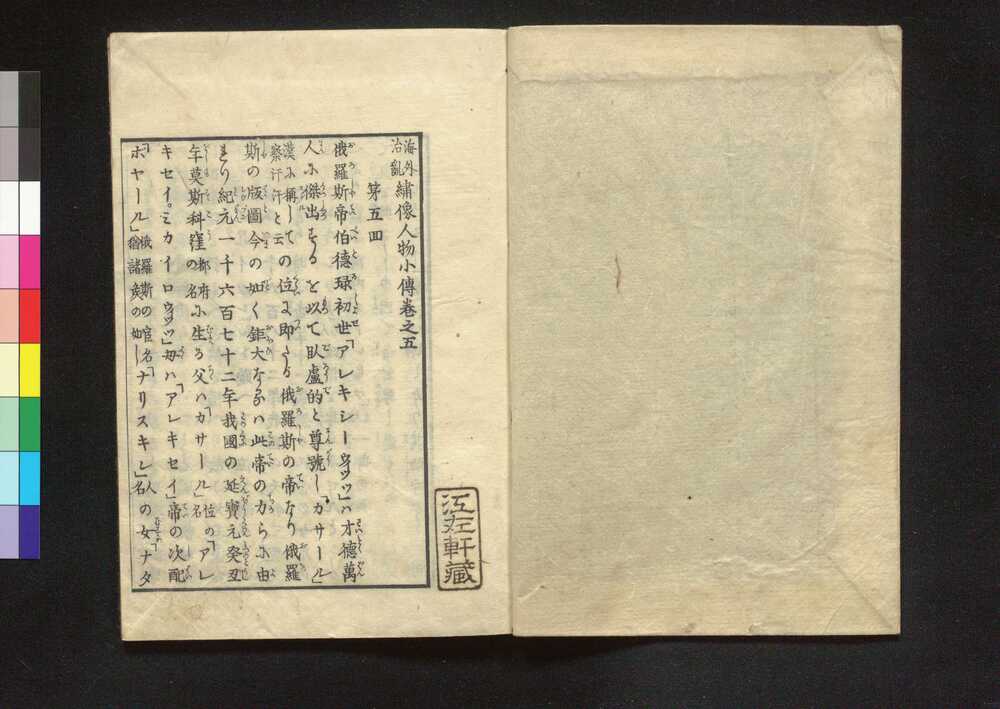 海外治亂繍像人物小傳卷之五
第五回
俄羅斯帝伯德琭初世「アレキシーウィッツ」ハオ德萬
人に傑出するを以て臥盧的と尊號し「カサール」
漢に稱して察汗汗と云の位に即たる俄羅斯の帝なり俄羅
斯の版圖今の如く鉅大なるハ此帝の力らに由
まり紀元一千六百七十二年我國の延寶元癸丑
年莫斯科窪都府の名に生る父ハ「カサール」位の名「アレ
キセイ。ミカイロウィッツ」母ハ「アレキセイ」帝の次配
「ボヤール」俄羅斯の官名猶諸矦の如し「ナリスキレ」人名の女「ナタ
江左軒藏